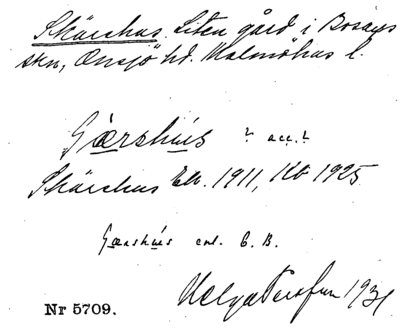 Skärshus. Liten gård i Bosarps
skn, Onsjö hd. Malmöhus l.
Gærshus ? acc.?
Skärshus Ek. 1911, Kb 1925
Gærshús enl. E. B.
Helga Persson 1931
Nr 5709.